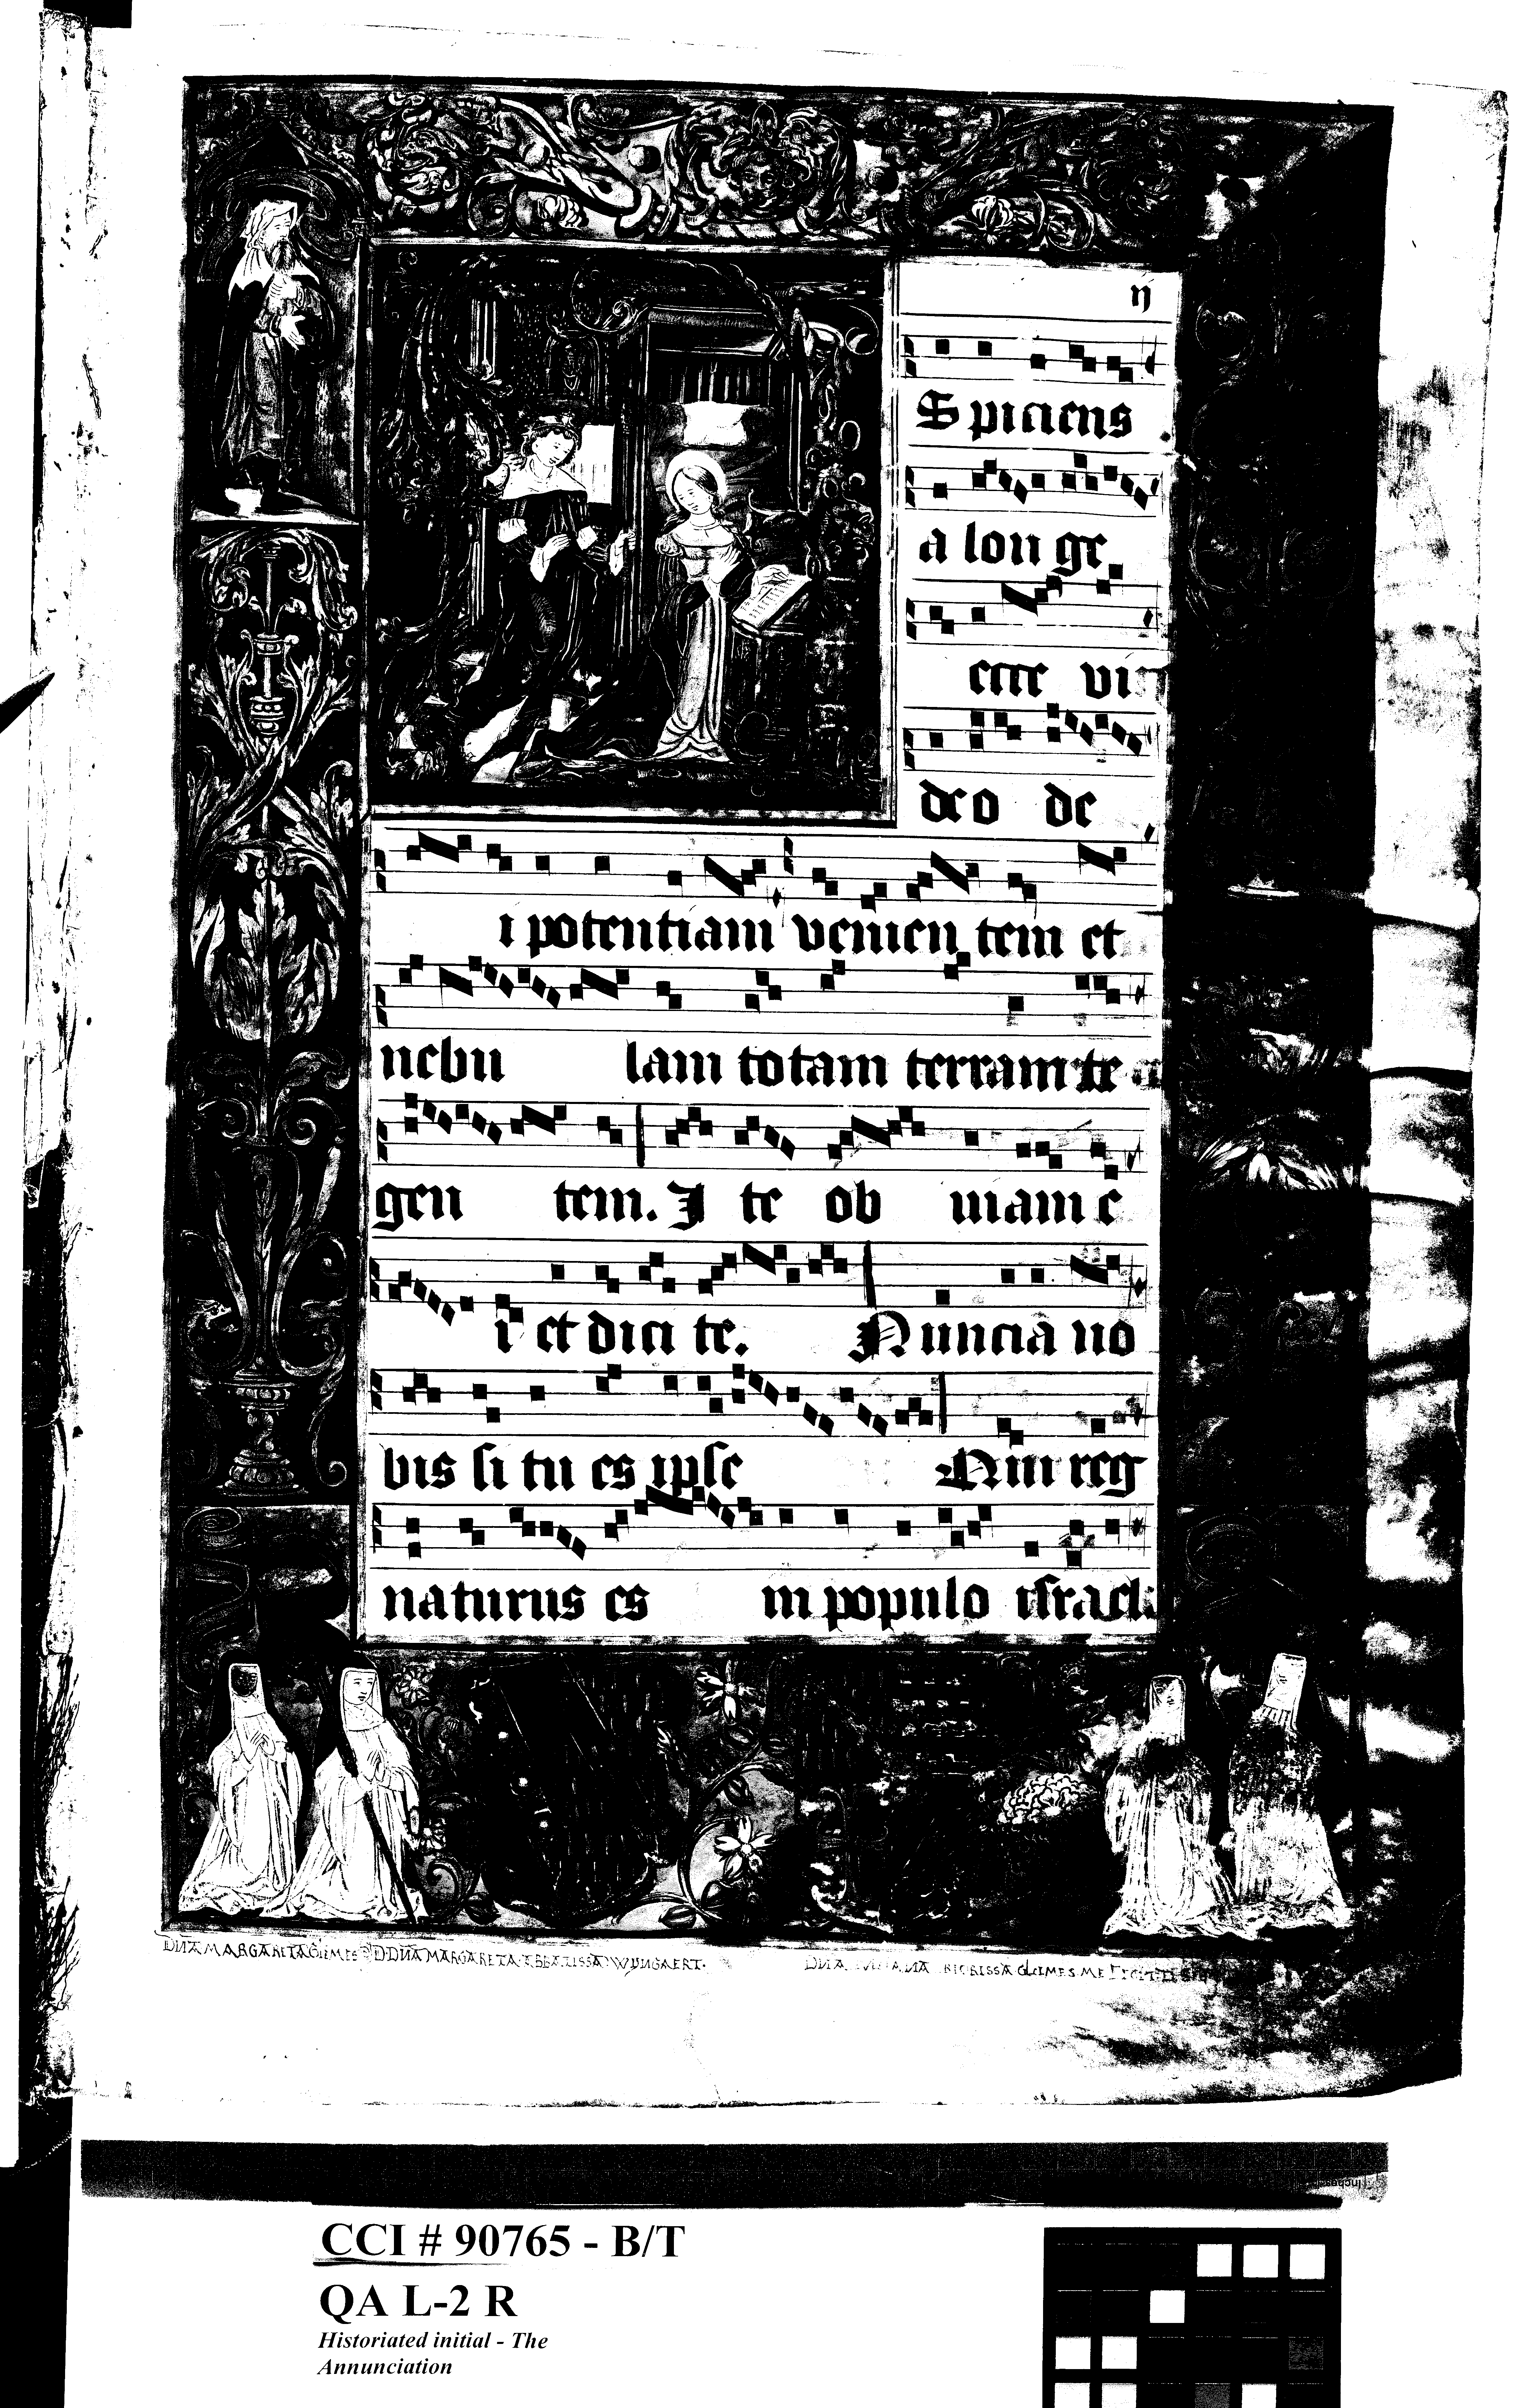 ij
Spiciens
a lon ge
erre vi
deo de
i potentiam venien tem et
nebu lam totam terram te
gen tem. I te ob uiam e
i et dici te. Nuncia no
bis si tu es ipse Qui reg
naturus es in populo israel.
DNA MARGARETA MARGARETA ABBATISSA WYNGAERT.
DNA PRIORISSA GLEIMES ME FECIT
CCI # 90765 - B/T
QA L-2 R
Historiated initial - The
Annunciation